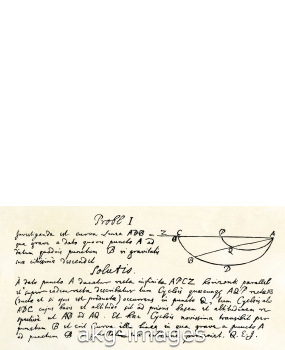 Probl I
Investiganda est curva Linea ADB
qua grave a dato quovis puncto A ad
datum quodvis punctum B vi gravitatis
suæ citissime descendet
Z C P A
B Q
D
Solutio.
A dato puncto A ducatur recta infinita APCZ horizonti parallel
et super eadem recta describatur tum Cyclois quæcunque AQP rectæ
(ductæ et si opus est productæ) occurrens in puncto Q, tum Cyclois alia
ADC cujus basis et altitudo sit ad prioris basem et altitudinem re-
spective ut AB ad AQ. Et hæc Cyclois novissima transibit per
punctum B et erit curva illa linea in qua grave a puncto A
ad punctum B Q.E.I.
akg-images